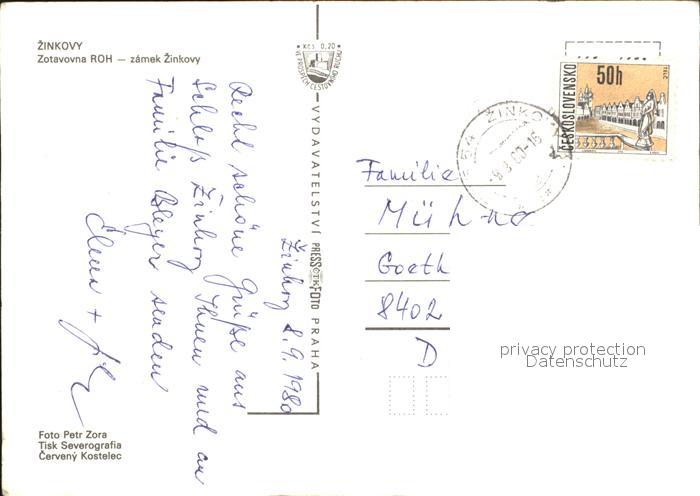 ŽINKOVY
Zotavovna ROH — zámek Žinkovy
Kčs 0,20
VE PROSPĚCH CESTOVNÍHO RUCHU
VYDAVATELSTVÍ PRESSFOTO PRAHA
ČTK
Žinkovy 8.9.1980
Recht schöne Grüße aus
Schloß Žinkovy Ihnen und an
Familie Bleyer senden
+
ČESKOSLOVENSKO
50h
ŽINKO
Familie
Goeth
8402
D
privacy protection
Datenschutz
Foto Petr Zora
Tisk Severografia
Červený Kostelec